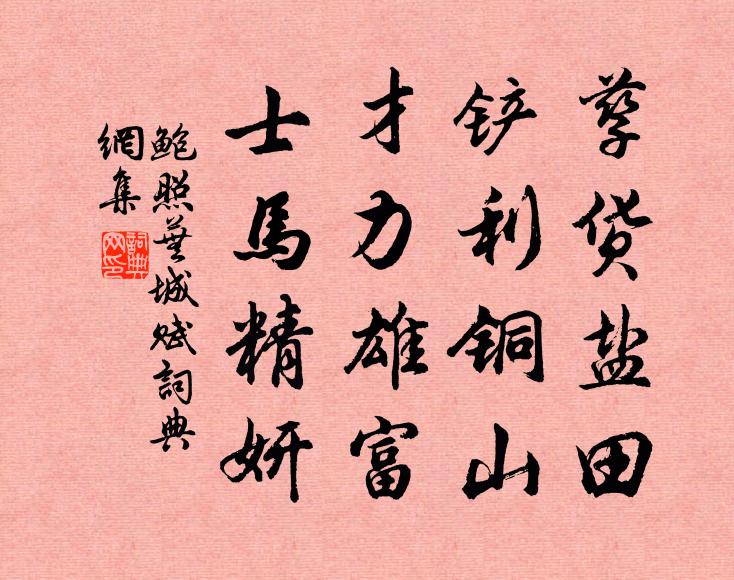 孳货盐田
铲利铜山
才力雄富
士馬精妍
鲍照蕪城赋詞典
網集
詞典网印